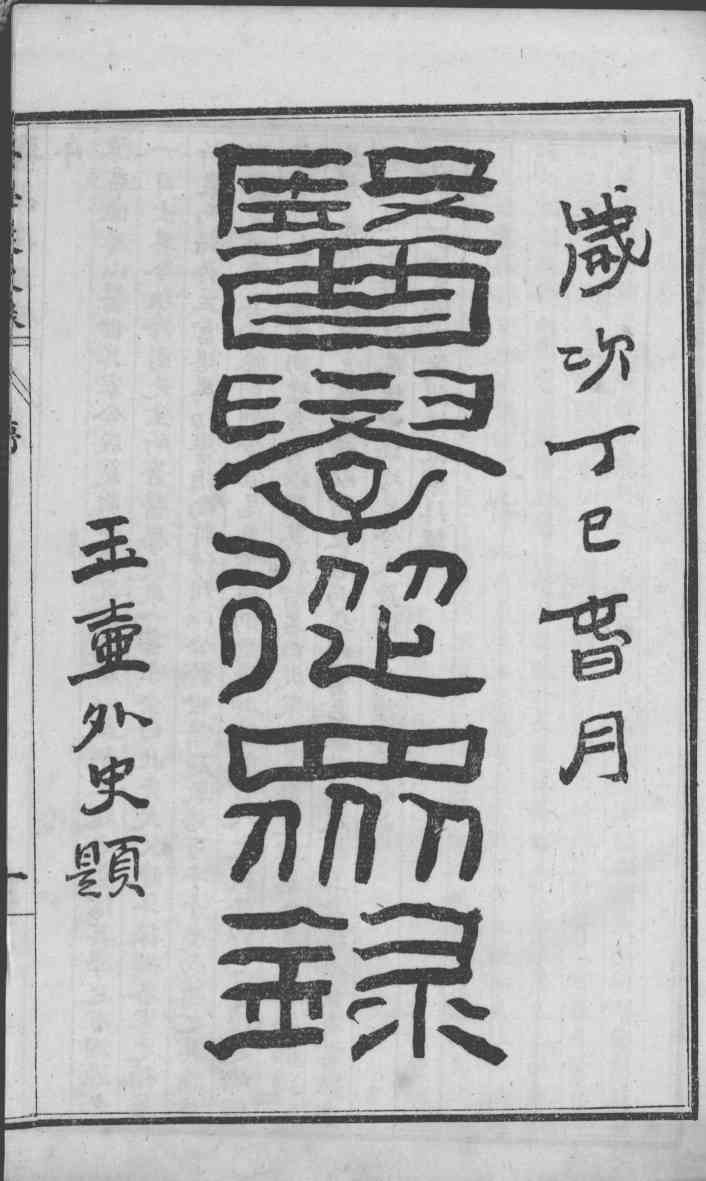 歲次丁巳春月
醫學從眾錄
玉壺外史題